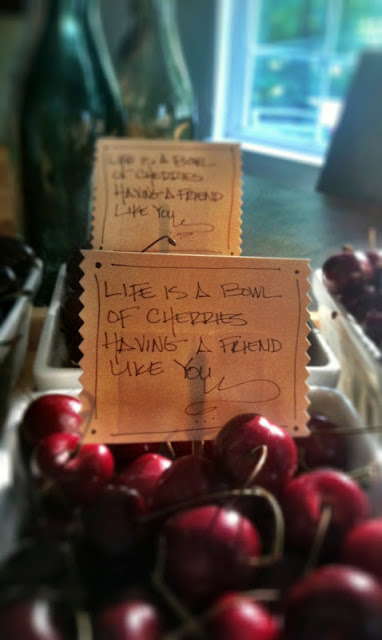 LIFE IS A BOWL
OF CHERRIES
HAVING A FRIEND
LIKE YOU
LIFE IS A BOWL
OF CHERRIES
HAVING A FRIEND
LIKE YOU